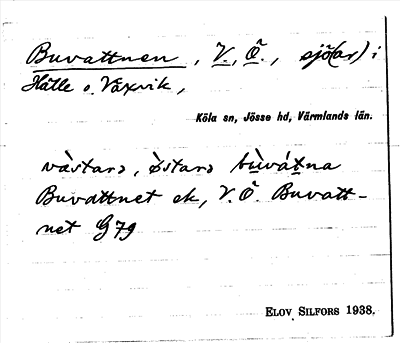 Buvattnen, V., Ö., sjö(ar) i
Hälle o. Vaxvik,
Köla sn, Jösse hd, Värmlands län.
vàstarɔ, òstarɔ bùvátna
Buvattnet ek, V. Ö. Buvatt-
net G 79
ELOV SILFORS 1938.